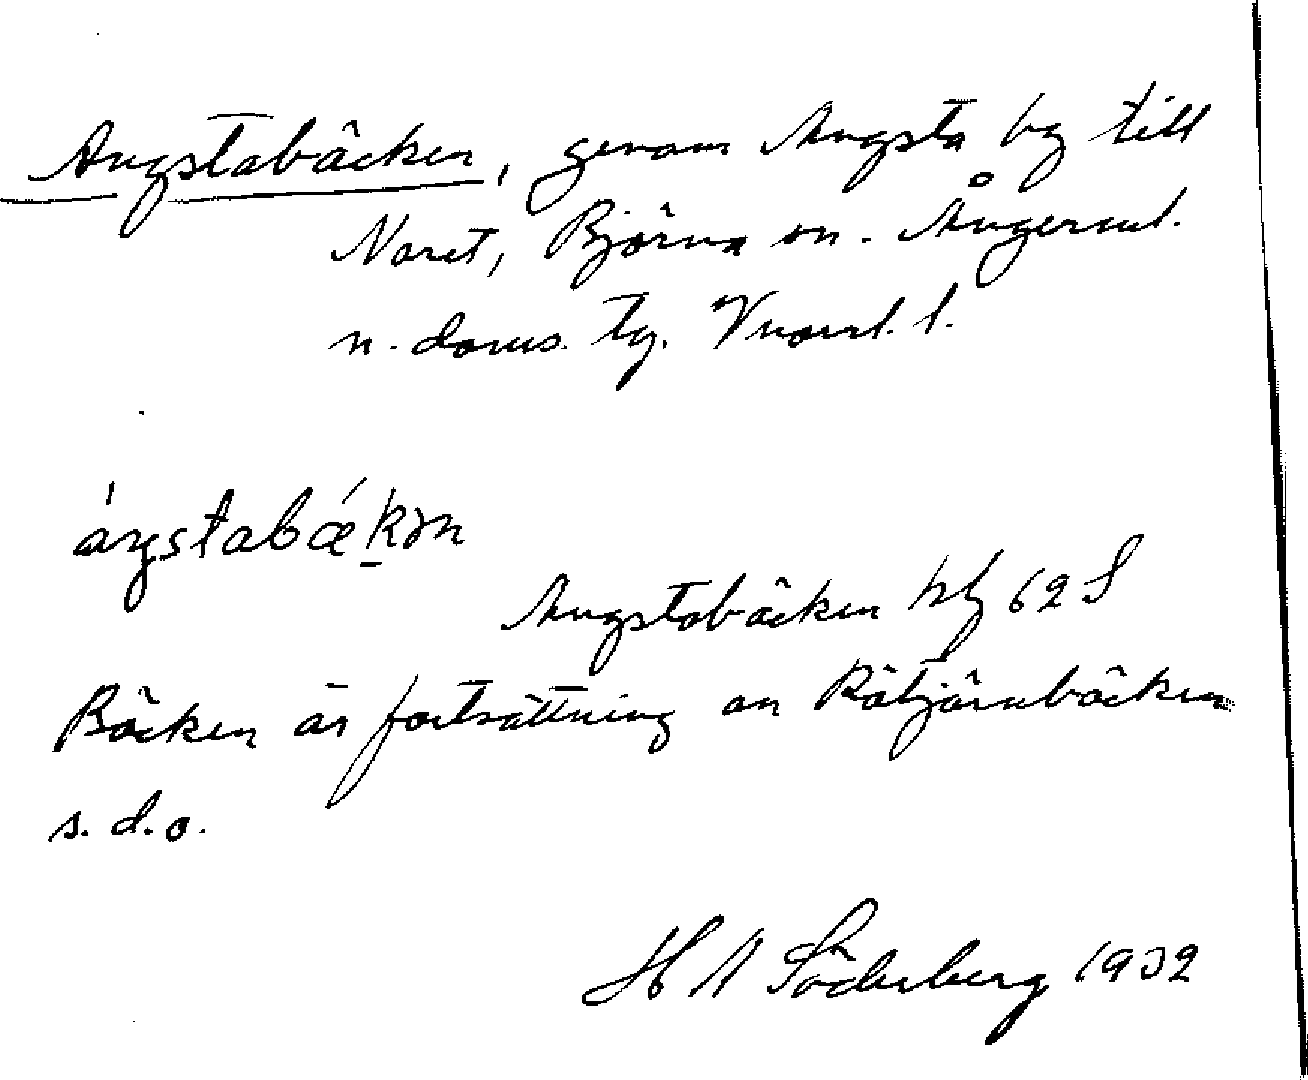 Angstabäcken, genom Angsta by till
Naret, Björna sn. Ångerml.
n. doms. tg. Vnorrl. l.
áŋstabǽkən
Angstabäcken hlf 62 S
Bäcken är fortsättning av Rötjärnbäcken
s. d. o.
H A Söderberg 1932